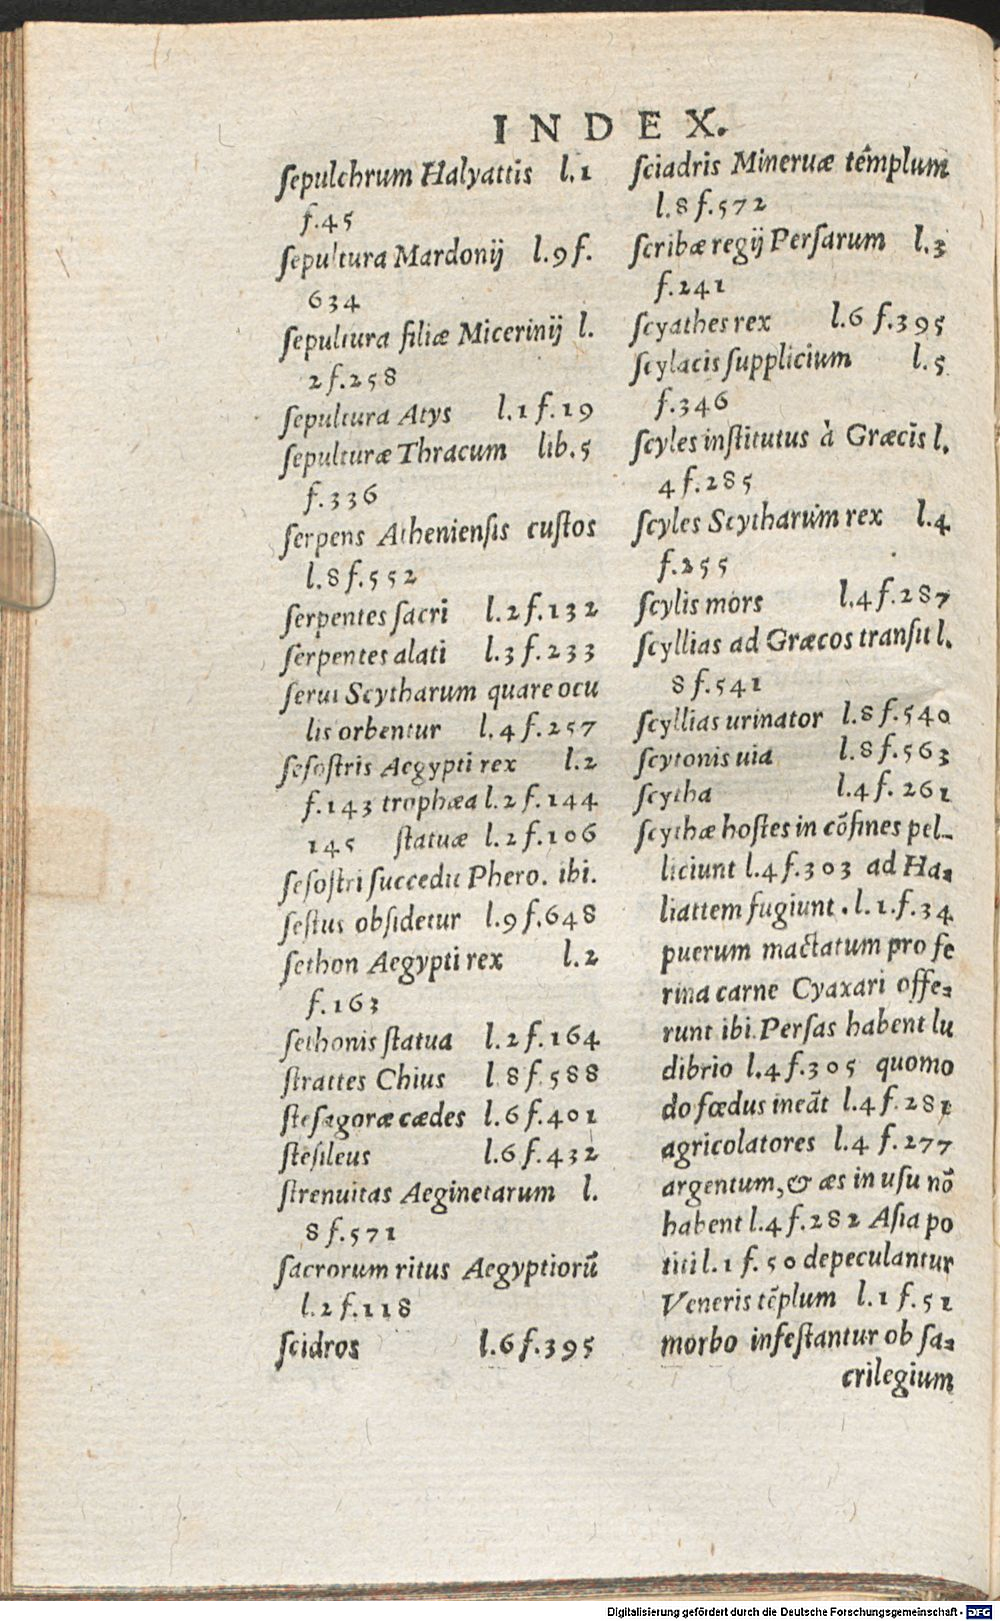 INDEX.
ſepulchrum Halyattis l.1
f.45
ſepultura Mardonij l.9 f.
634
ſepultura filiæ Micerinij l.
2 f.258
ſepultura Atys l.1 f.19
ſepulturæ Thracum lib.5
f.336
ſerpens Athenienſis cuſtos
l.8 f.552
ſerpentes ſacri l.2 f.132
ſerpentes alati l.3 f.233
ſerui Scytharum quare ocu
lis orbentur l.4 f.257
ſeſoſtris Aegypti rex l.2
f.143 trophæa l.2 f.144
145 ſtatuæ l.2 f.106
ſeſoſtri ſuccedit Phero. ibi.
ſeſtus obſidetur l.9 f.648
ſethon Aegypti rex l.2
f.163
ſethonis ſtatua l.2 f.164
ſtrattes Chius l.8 f.588
ſteſagoræ cædes l.6 f.401
ſteſileus l.6 f.432
ſtrenuitas Aeginetarum l.
8 f.571
ſacrorum ritus Aegyptiorũ
l.2 f.118
ſcidros l.6 f.395
ſciadris Mineruæ templum
l.8 f.572
ſcribæ regij Perſarum l.3
f.241
ſcyathes rex l.6 f.395
ſcylacis ſupplicium l.5
f.346
ſcyles inſtitutus à Græcis l.
4 f.285
ſcyles Scytharum rex l.4
f.255
ſcylis mors l.4 f.287
ſcyllias ad Græcos tranſit l.
8 f.541
ſcyllias urinator l.8 f.540
ſcytonis uia l.8 f.563
ſcytha l.4 f.261
ſcythæ hoſtes in cõfines pel-
liciunt l.4 f.303 ad Ha-
liattem fugiunt. l.1.f.34
puerum mactatum pro fe
rina carne Cyaxari offe-
runt ibi. Perſas habent lu
dibrio l.4 f.305 quomo
do fœdus ineãt l.4 f.281
agricolatores l.4 f.277
argentum, & æs in uſu nõ
habent l.4 f.282 Aſia po
titi l.1 f.50 depeculantur
Veneris tẽplum l.1 f.51
morbo infeſtantur ob ſa-
crilegium
Digitalisierung gefördert durch die Deutsche Forschungsgemeinschaft - DFG